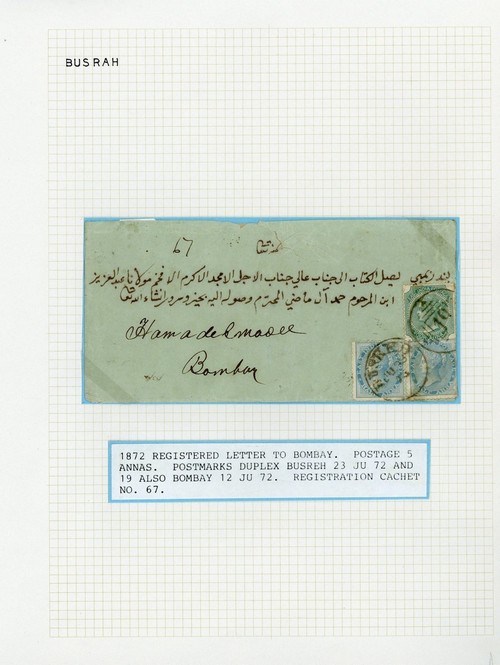 BUSRAH
67
بندر بمبي يصل الكتاب الى جناب عالي جناب الاجل الامجد الاكرم الافخم مولانا عبد العزيز
ابن المرحوم حمد آل ماضي المحترم وصوله اليه بخير وسرور انشاء الله تعالى
Hamad
Bombay
BUSREH
1872 REGISTERED LETTER TO BOMBAY. POSTAGE 5
ANNAS. POSTMARKS DUPLEX BUSREH 23 JU 72 AND
19 ALSO BOMBAY 12 JU 72. REGISTRATION CACHET
NO. 67.